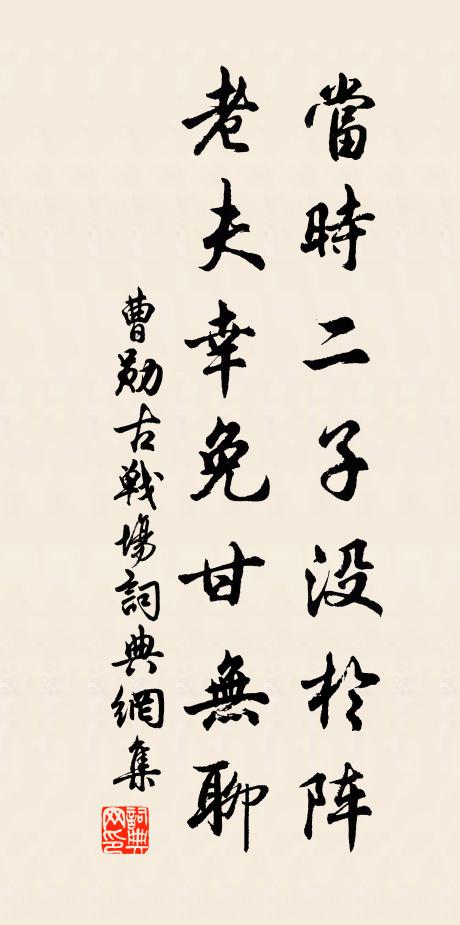 當時二子没於阵
老夫幸免甘無聊
曹勋古戰場詞典網集
詞典网印